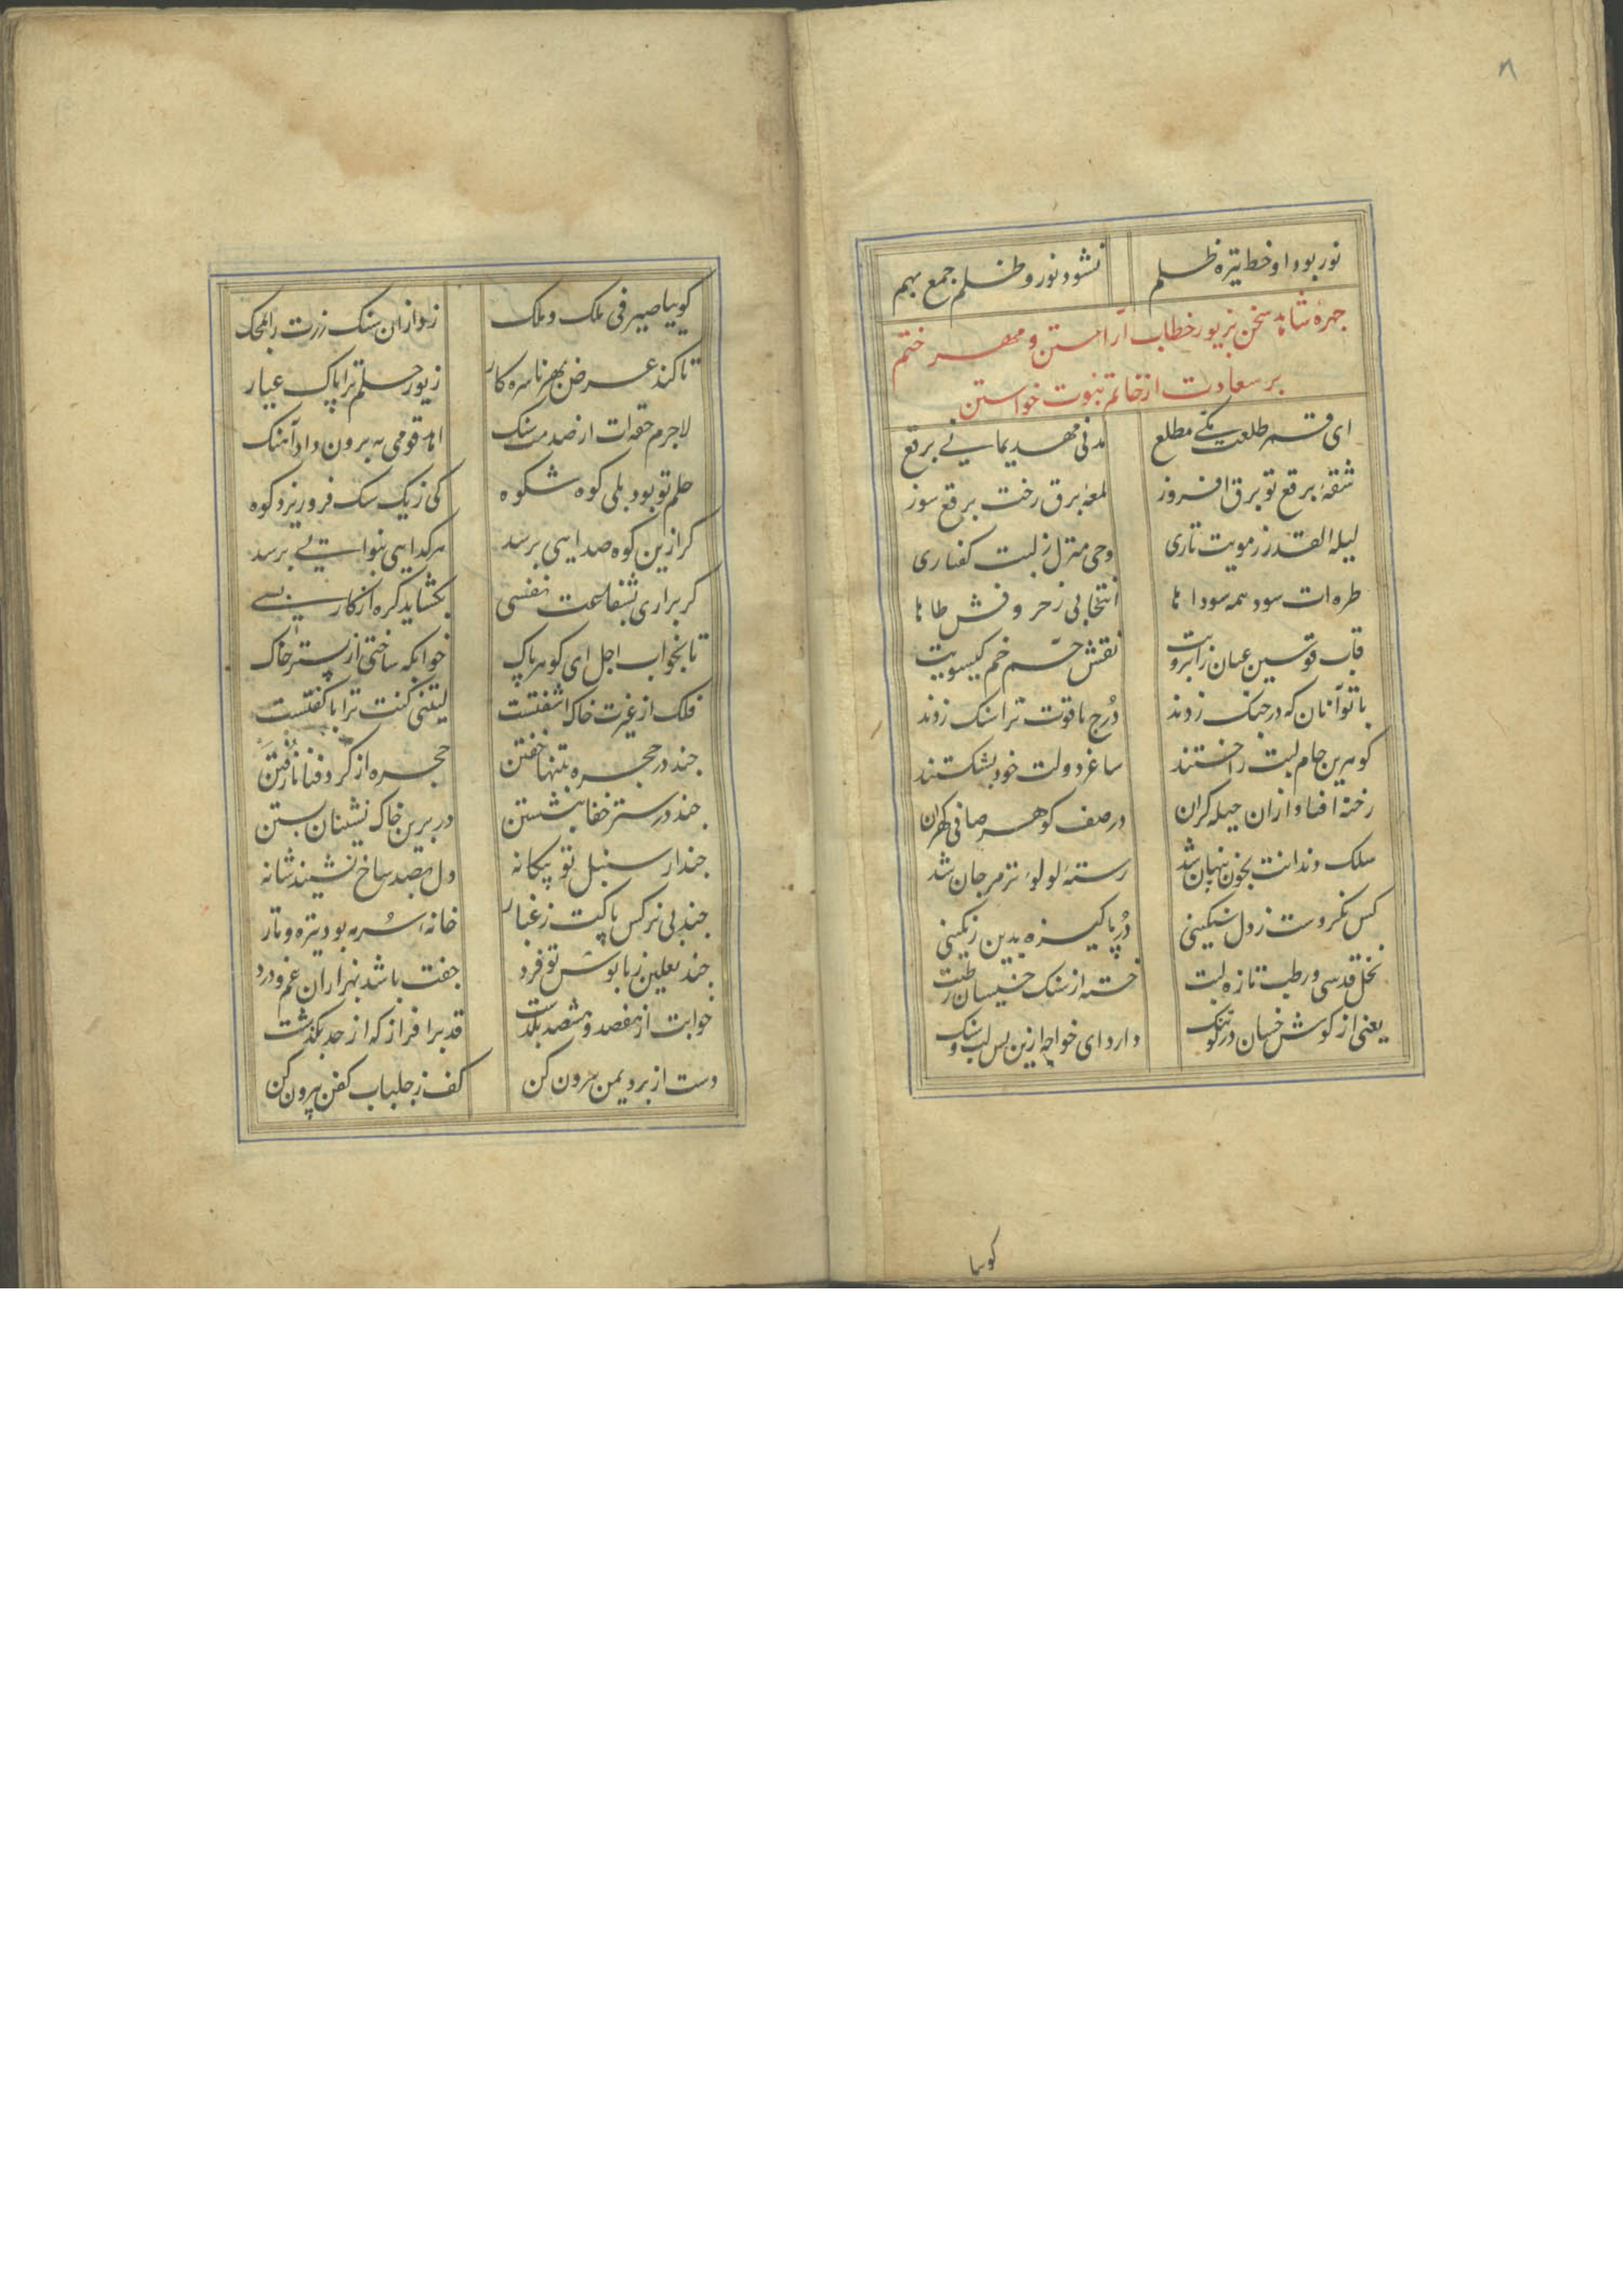 ۸
نور بود او خط تیره ظلم نشود نور و ظلم جمع بهم
جهرهٔ شاهد سخن بزیور خطاب آراستن و مهر ختم
بر سعادت از خاتم نبوت خواستن
ای قمر طلعت مکی مطلع مدنی مهد یمانی برقع
شقهٔ برقع تو برق افروز لمعهٔ برق رخت برقع سوز
لیله القدر ز مویت تاری وحی منزل ز لبت کفتاری
طره ات سود همه سوداها انتخابی ز حروفش طاها
قاب قوسین عیان ز ابرویت نقش حم خم کیسویت
با تو آنان که در جنک زدند دُرج یاقوت ترا سنک زدند
کوهرین جام لبت را خستند ساغر دولت خود بشکستند
رخنه افتاد از ان حیله کران در صف کوهر صافی کهران
سلک دندانت بخون پنهان شد رستهٔ لولوء تر مرجان شد
کس نکردست ز دل سنکینی دُر پاکیزه بدین رنکینی
نخل قدسی و رطب تازه لبت خسته از سنک خسیسان رطبت
یعنی از کوش خسان در تنک دارد ای خواجه ازین پس لب و سنک
کویا
کویبا صیرفی ملک و ملک زد از ان سنک زرت را بمحک
تا کند عرض بهر ناسره کار زیور حلم ترا پاک عیار
لاجرم حقه ات از صدمت سنک اهد قومی به برون داد آهنک
حلم تو بود بلی کوه شکوه کی ز یک سنک فرو ریزد کوه
کر ازین کوه صدایی برسد هر کدایی بنوایی برسد
کر براری بشفاعت نفسی بکشاید کره از کار بسی
تا بخواب اجل ای کوهر پاک خوابکه ساختی از بستر خاک
فلک از غیرت خاک اشفتست لیتنی کنت ترابا کفتست
جند در حجره تنها خفتن حجره از کرد وفا نارفتن
جند در ستر خفا بنشستن در برین خاک نشینان بستن
جند از سنبل تو بیکانه دل بصد شاخ نشیند شانه
جند بی نرکس پاکت ز غبار خانهٔ سُرمه بود تیره و تار
جند نعلین ز پابوش تو فرد جفت باشد بهزاران غم و درد
خوابت از هفصد و هشصد بکذشت قد برافراز که از حد بکذشت
دست از برد یمن بیرون کن کف ز جلباب کفن بیرون کن